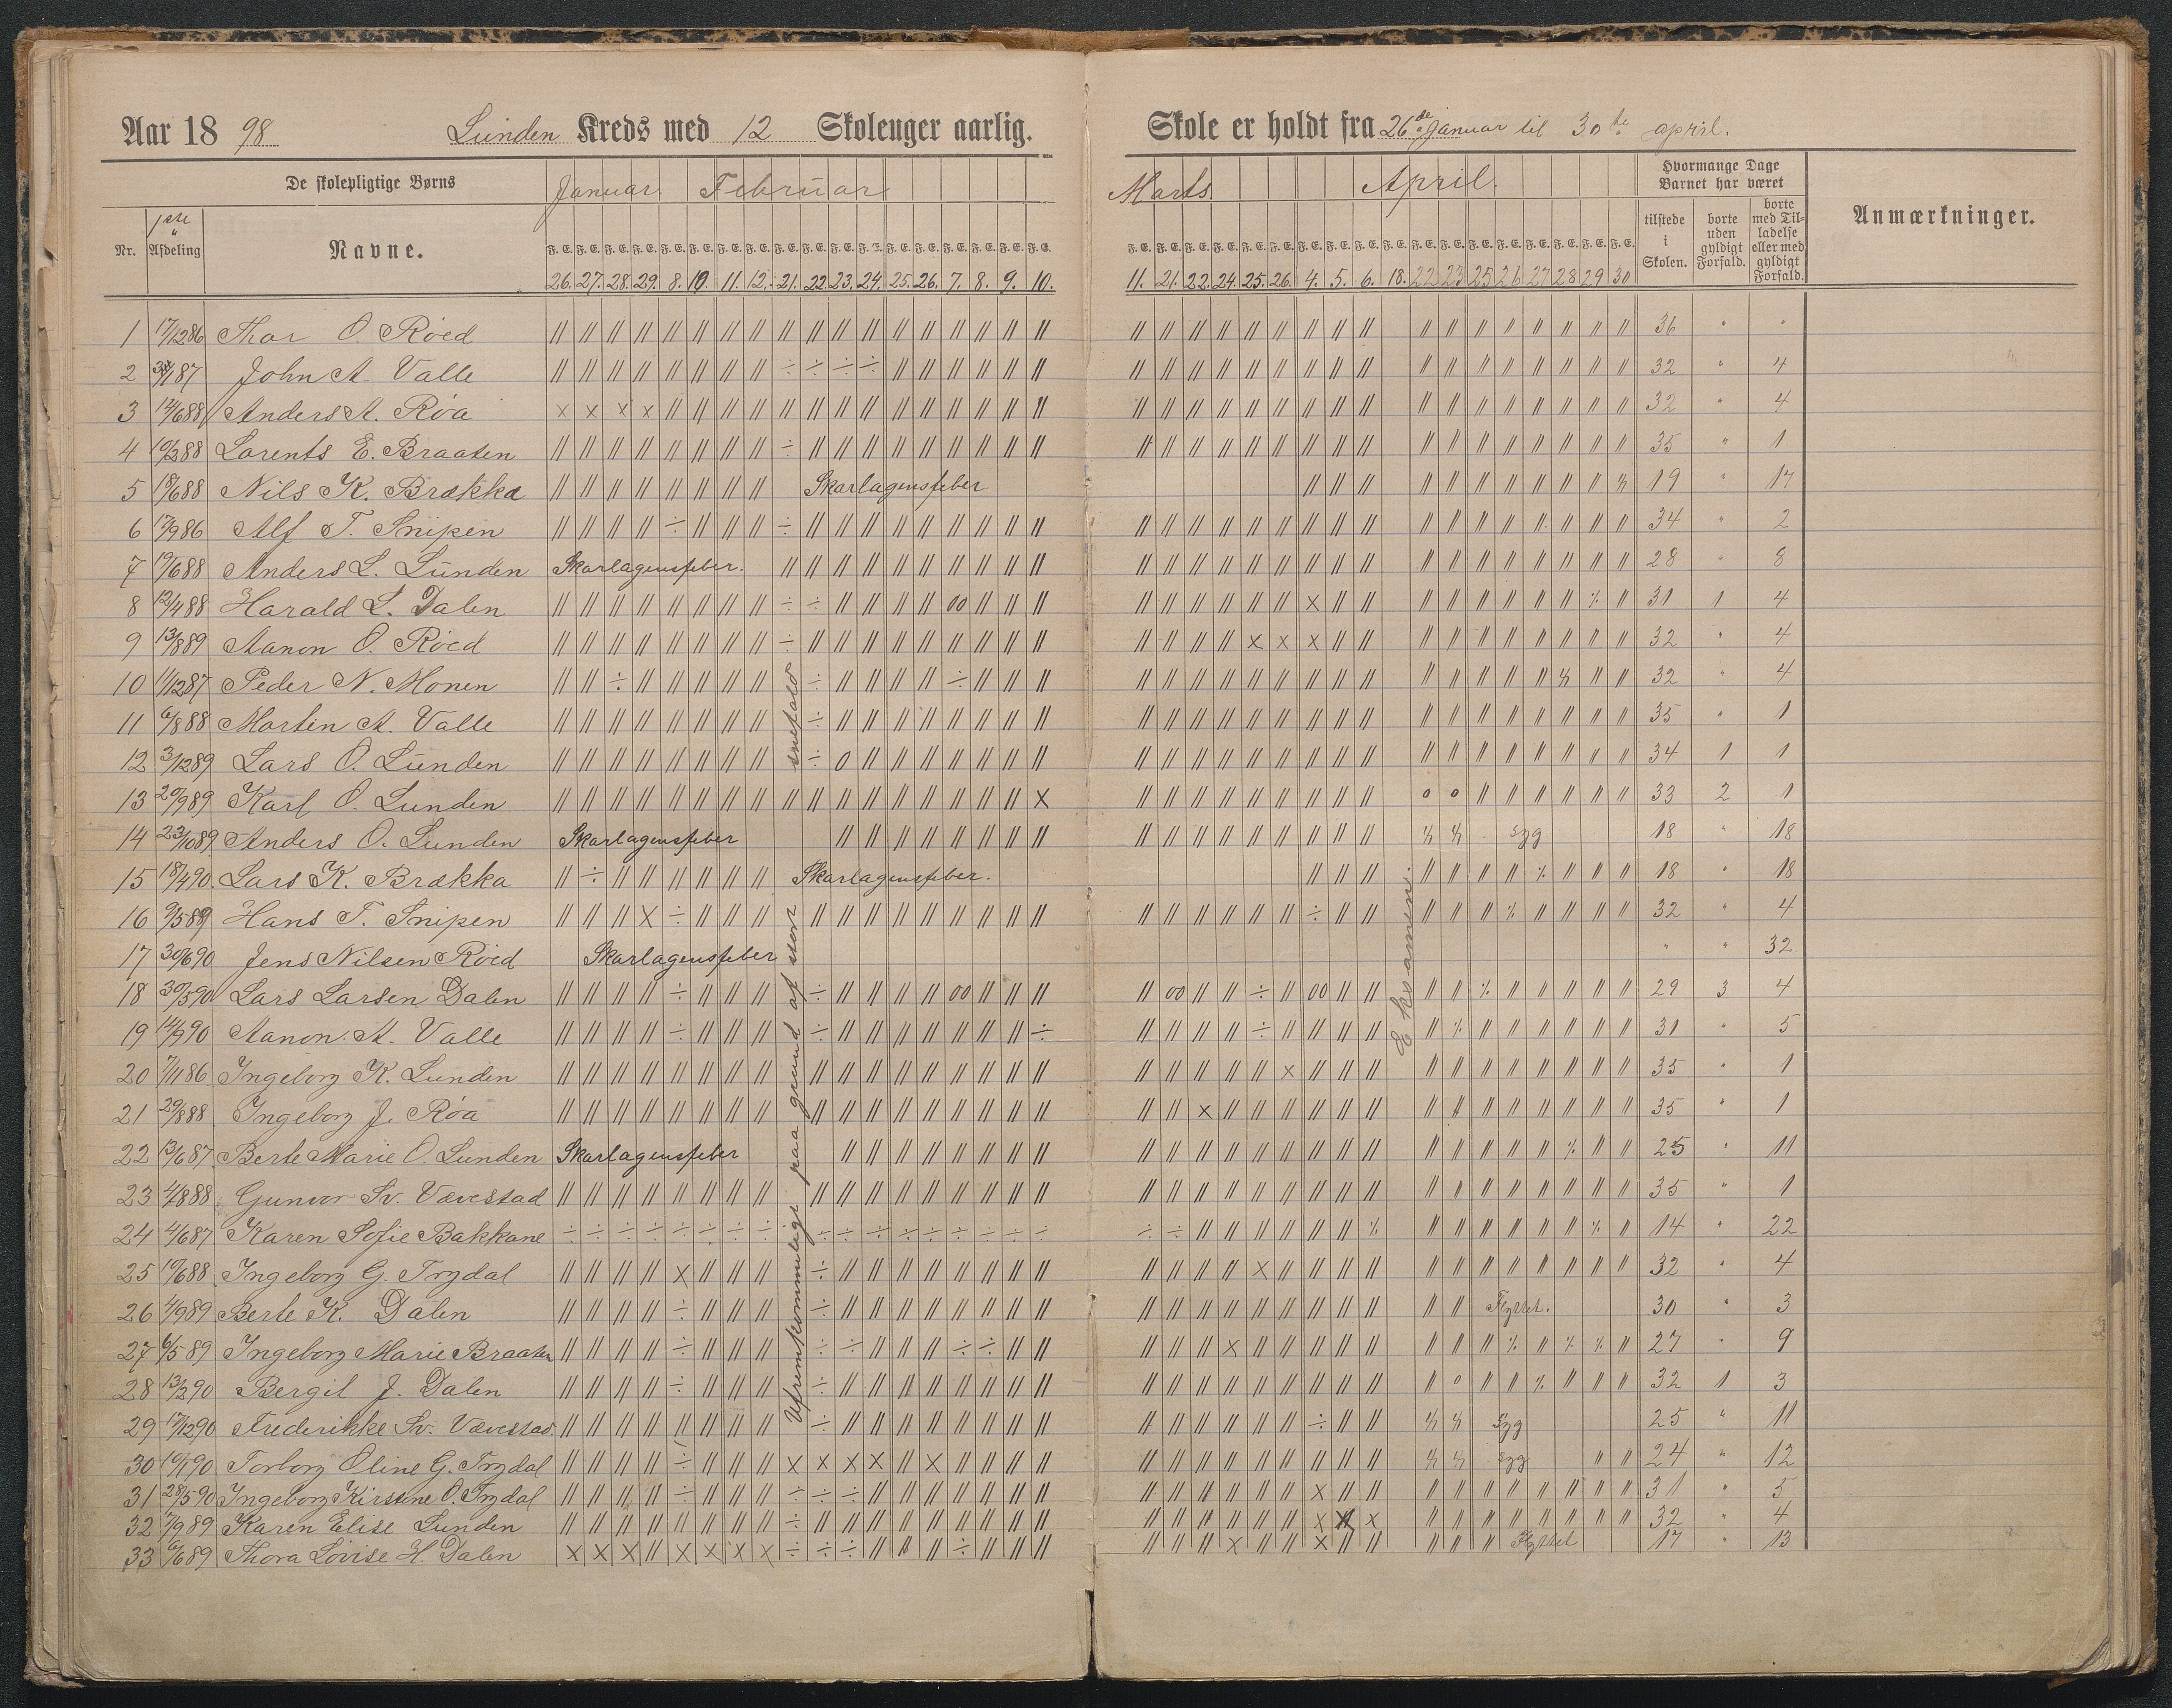 Aar 1898 Lunden Kreds med 12 Skoleuger aarlig. Skole er holdt fra 26de Januar til 30te april.
De skolepligtige Børns Januar. Februar Marts. April. Hvormange Dage Barnet har været
Nr. 1ste Afdeling Navne. tilstede i Skolen. borte uden gyldigt Forfald. borte med Tilladelse eller med gyldigt Forfald. Anmærkninger.
F. E. F. E. F. E. F. E. F. E. F. E. F. E. F. E. F. E. F. E. F. E. F. E. F. E. F. E. F. E. F. E. F. E. F. E. F. E. F. E. F. E. F. E. F. E. F. E. F. E. F. E. F. E. F. E. F. E. F. E. F. E. F. E. F. E. F. E. F. E. F. E.
26. 27. 28. 29. 8. 10. 11. 12. 21. 22. 23. 24. 25. 26. 7. 8. 9. 10. 11. 21. 22. 24. 25. 26. 4. 5. 6. 18. 22 23 25 26 27 28 29 30
1 17/12 86 Thor O. Röed 36 " "
2 87 John A. Valle 32 " 4
3 12/6 88 Anders A. Röa 32 " 4
4 10/3 88 Lorents E. Braaten 35 " 1
5 18/6 88 Nils K. Brækka Skarlagensfeber 19 " 17
6 17/9 86 Alf T. Snipen 34 " 2
7 19/6 88 Anders L. Lunden Skarlagensfeber. 28 " 8
8 12/4 88 Harald L. Dalen 31 1 4
9 13/8 89 Aanon O. Röed 32 " 4
10 11/12 87 Peder N. Monen 32 " 4
11 6/8 88 Martin A. Valle 35 " 1
12 3/12 89 Lars O. Lunden 34 1 1
13 20/9 89 Karl O. Lunden 33 2 1
14 23/10 89 Anders O. Lunden Skarlagensfeber syg 18 " 18
15 18/4 90 Lars K. Brækka Skarlagensfeber. 18 " 18
16 9/5 89 Hans T. Snipen 32 " 4
17 30/6 90 Jens Nilsen Röed Skarlagensfeber " " 32
18 30/5 90 Lars Larsen Dalen 29 3 4
19 14/9 90 Aanon A. Valle 31 " 5
20 7/11 86 Ingeborg K. Lunden 35 " 1
21 29/8 88 Ingeborg J. Röa 35 " 1
22 13/6 87 Berte Marie O. Lunden Skarlagensfeber 25 " 11
23 4/8 88 Gunvor Sv. Vævestad 35 " 1
24 4/6 87 Karen Sofie Bakkane 14 " 22
25 19/6 88 Ingeborg G. Trydal 32 " 4
26 4/9 89 Berte K. Dalen Flyttet. 30 " 3
27 6/5 89 Ingeborg Marie Braaten 27 " 9
28 13/2 90 Bergit J. Dalen 32 1 3
29 17/12 90 Frederikke Sv. Vævestad. syg 25 " 11
30 10/1 90 Torborg Oline G. Trydal syg 24 " 12
31 28/5 90 Ingeborg Kirstine O. Trydal 31 " 5
32 7/9 89 Karen Elise Lunden 32 " 4
33 6/6 89 Thora Lovise H. Dalen Flyttet 17 " 13
Ufremkommeligt paa grund af stort snefald
Eksamen.